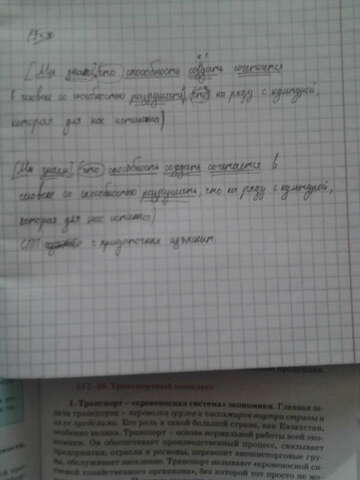 [Мы знаем], (что) способность создать сочетается
в человеке со способностью разрушать, (что) на ряду с культурой,
которая для нас
[Мы знаем], (что способность создать сочетается в
человеке со способностью разрушать, что на ряду с культурой,
которая для нас
СПП с придаточным изъяснит.
§17–18. Транспортный комплекс
1. Транспорт – «кровеносная система» экономики. Главная за-
дача транспорта – перевозка грузов и пассажиров внутри страны и
за ее пределами. Его роль в такой большой стране, как Казахстан,
особенно велика. Транспорт – основа нормальной работы всей эко-
номики. Он обеспечивает производственный процесс, связывает
предприятия, отрасли и регионы, перевозит внешнеторговые гру-
зы, обслуживает население. Транспорт называют «кровеносной си-
стемой хозяйственного организма», без которой тот просто не мо-